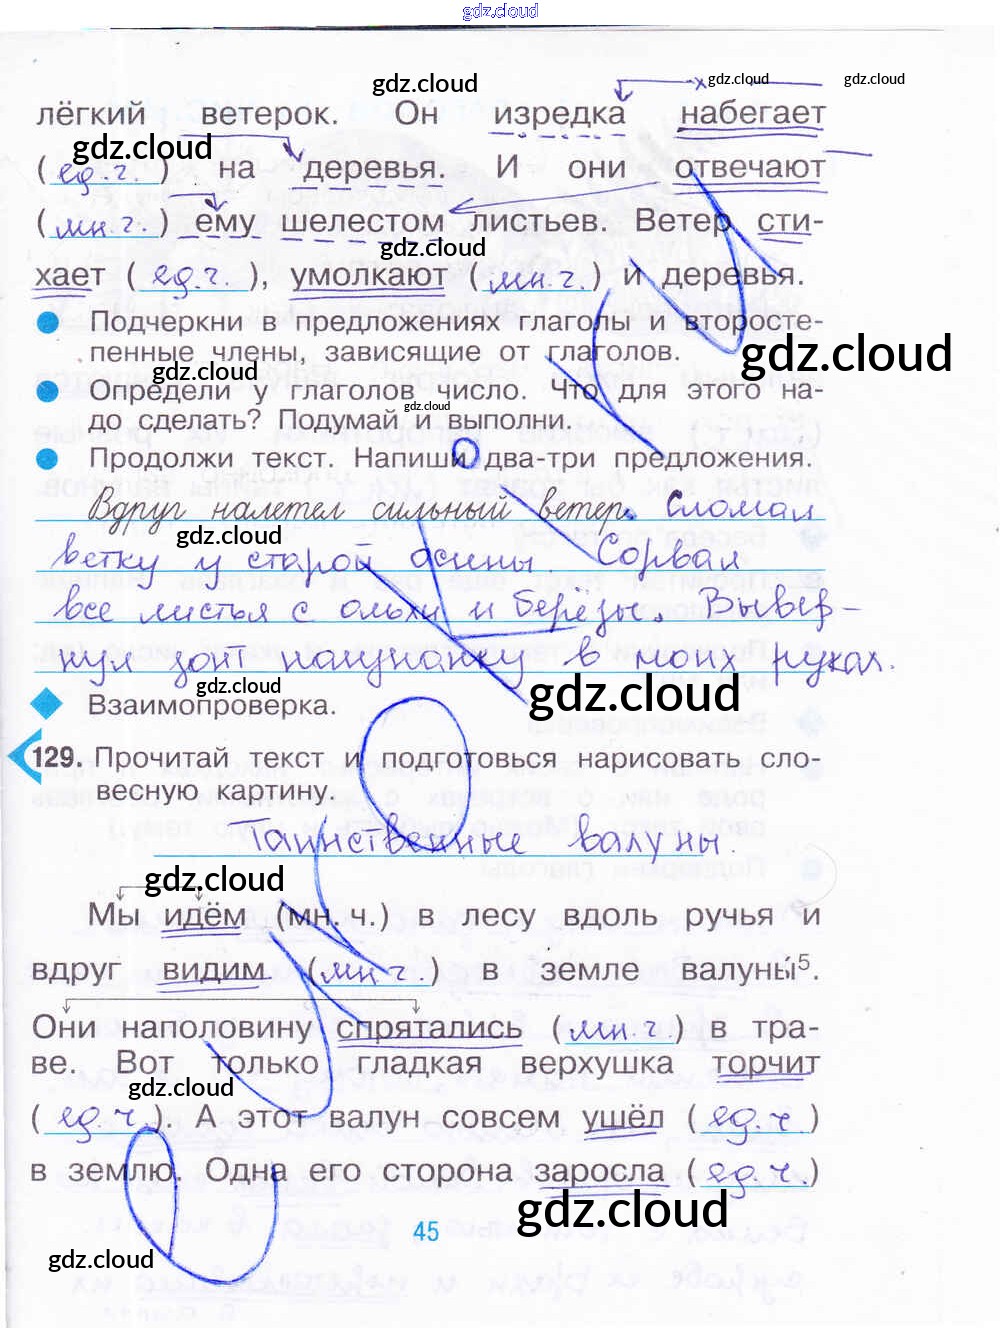 gdz.cloud
gdz.cloud gdz.cloud gdz.cloud
лёгкий ветерок. Он изредка набегает
gdz.cloud
(ед.ч.) на деревья. И они отвечают
(мн.ч.) ему шелестом листьев. Ветер сти-
gdz.cloud
хает (ед.ч.), умолкают (мн.ч.) и деревья.
Подчеркни в предложениях глаголы и второсте-
пенные члены, зависящие от глаголов.
gdz.cloud
gdz.cloud
Определи у глаголов число. Что для этого на-
gdz.cloud
до сделать? Подумай и выполни.
Продолжи текст. Напиши два-три предложения.
Вдруг налетел сильный ветер. Сломал
gdz.cloud
ветку у старой осины. Сорвал
все листья с ольхи и берёзы. Вывер-
нул зонт наизнанку в моих руках.
gdz.cloud
gdz.cloud
Взаимопроверка.
129. Прочитай текст и подготовься нарисовать сло-
весную картину.
Таинственные валуны.
gdz.cloud
Мы идём (мн. ч.) в лесу вдоль ручья и
вдруг видим (мн.ч.) в земле валуны⁵.
Они наполовину спрятались (мн.ч.) в тра-
ве. Вот только гладкая верхушка торчит
gdz.cloud
(ед.ч.). А этот валун совсем ушёл (ед.ч.)
в землю. Одна его сторона заросла (ед.ч.)
gdz.cloud
45
gdz.cloud